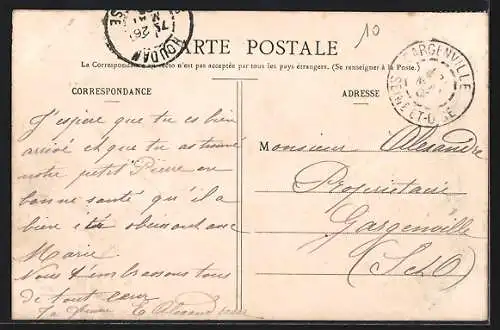 HOUDAN
CARTE POSTALE
10
GARGENVILLE
SEINE-ET-OISE
La Correspondance au recto n'est pas acceptée par tous les pays étrangers. (Se renseigner à la Poste.)
CORRESPONDANCE
ADRESSE
J'espère que tu es bien
arrivé et que tu as trouvé
notre petit Pierre en
bonne santé qu'il a
bien été obéissant avec
Marie
Nous t'embrassons tous
de tout cœur
Ta femme E Alexandre
Monsieur Alexandre
Propriétaire
Gargenville
(S et O)